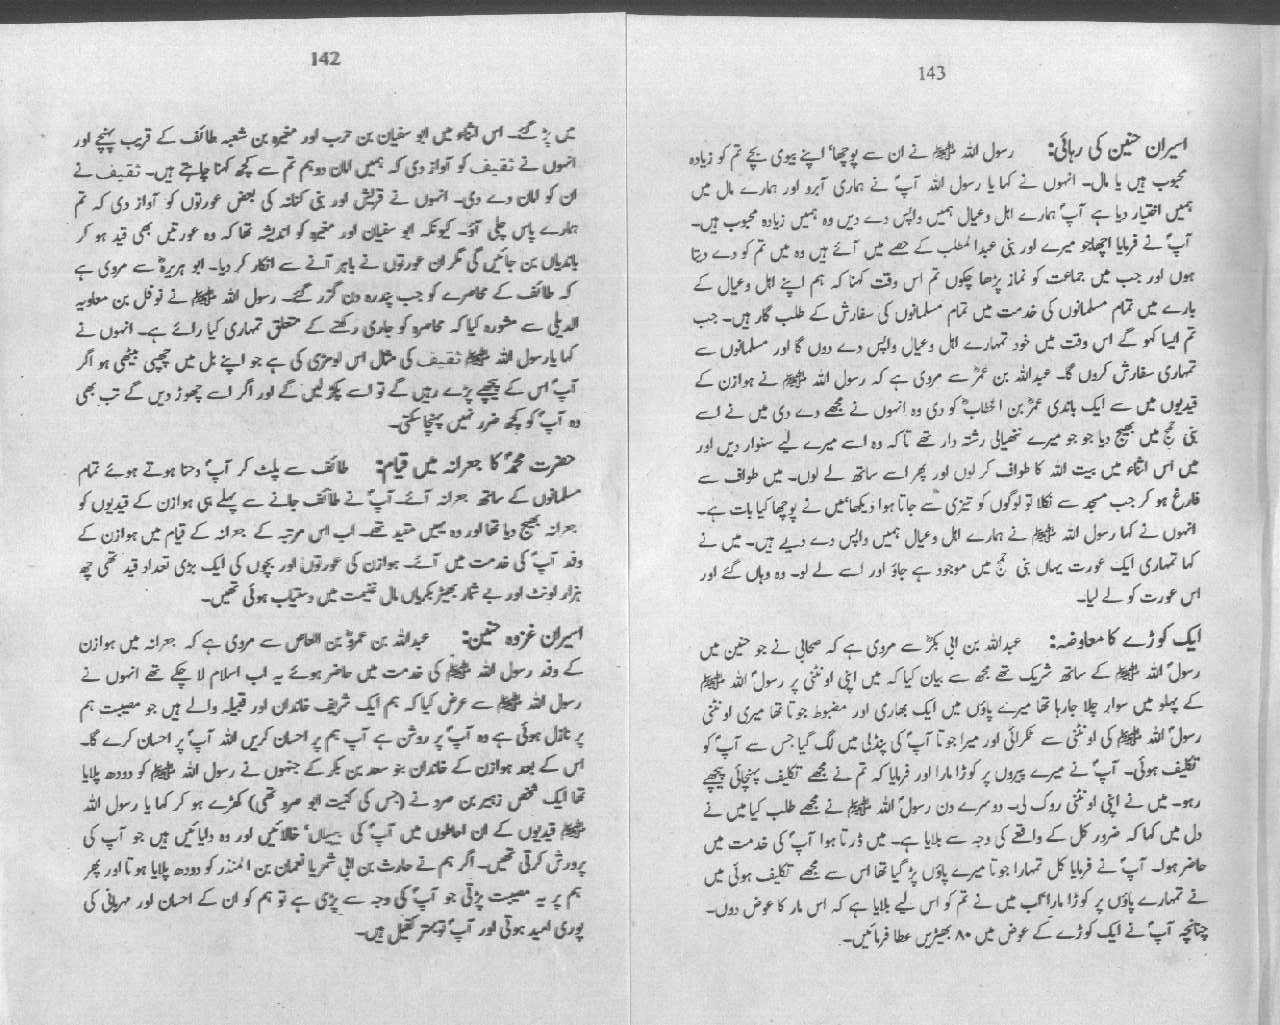 142
میں پڑ گئے۔ اس اثناء میں ابو سفیان بن حرب اور مغیرہ بن شعبہ طائف کے قریب پہنچے اور
انہوں نے ثقیف کو آواز دی کہ ہمیں امان دو ہم تم سے کچھ کہنا چاہتے ہیں۔ ثقیف نے
ان کو امان دے دی۔ انہوں نے قریش اور بنی کنانہ کی بعض عورتوں کو آواز دی کہ تم
ہمارے پاس چلی آؤ۔ کیونکہ ابو سفیان اور مغیرہ کو اندیشہ تھا کہ وہ عورتیں بھی قید ہو کر
باندیاں بن جائیں گی مگر ان عورتوں نے باہر آنے سے انکار کر دیا۔ ابو ہریرہؓ سے مروی ہے
کہ طائف کے محاصرے کو جب پندرہ دن گزر گئے۔ رسول اللہ ﷺ نے نوفل بن معاویہ
الدیلی سے مشورہ کیا کہ محاصرہ کو جاری رکھنے کے متعلق تمہاری کیا رائے ہے۔ انہوں نے
کہا یا رسول اللہ ﷺ ثقیف کی مثال اس لومڑی کی ہے جو اپنے بل میں چھپی بیٹھی ہو اگر
آپؐ اس کے پیچھے پڑے رہیں گے تو اسے پکڑ لیں گے اور اگر اسے چھوڑ دیں گے تب بھی
وہ آپؐ کو کچھ ضرر نہیں پہنچا سکتی۔
حضرت محمدؐ کا جعرانہ میں قیام: طائف سے پلٹ کر آپؐ دحنا ہوتے ہوئے تمام
مسلمانوں کے ساتھ جعرانہ آئے۔ آپؐ نے طائف جانے سے پہلے ہی ہوازن کے قیدیوں کو
جعرانہ بھیج دیا تھا اور وہ یہیں مقید تھے۔ اب اس مرتبہ کے جعرانہ کے قیام میں ہوازن کے
وفد آپؐ کی خدمت میں آئے۔ ہوازن کی عورتوں اور بچوں کی ایک بڑی تعداد قید تھی چھ
ہزار اونٹ اور بے شمار بھیڑ بکریاں مال غنیمت میں دستیاب ہوئی تھیں۔
اسیران غزوہ حنین: عبداللہ بن عمروؓ بن العاص سے مروی ہے کہ جعرانہ میں ہوازن
کے وفد رسول اللہ ﷺ کی خدمت میں حاضر ہوئے یہ اب اسلام لا چکے تھے انہوں نے
رسول اللہ ﷺ سے عرض کیا کہ ہم ایک شریف خاندان اور قبیلہ والے ہیں جو مصیبت ہم
پر نازل ہوئی ہے وہ آپؐ پر روشن ہے آپ ہم پر احسان کریں اللہ آپؐ پر احسان کرے گا۔
اس کے بعد ہوازن کے خاندان بنو سعد بن بکر کے جنہوں نے رسول اللہ ﷺ کو دودھ پلایا
تھا ایک شخص زہیر بن صرد نے (جس کی کنیت ابو صرد تھی) کھڑے ہو کر کہا یا رسول اللہ
ﷺ قیدیوں کے ان احاطوں میں آپؐ کی پھوپھیاں، خالائیں اور وہ دایائیں ہیں جو آپ کی
پرورش کرتی تھیں۔ اگر ہم نے حارث بن ابی شمر یا نعمان بن المنذر کو دودھ پلایا ہوتا اور پھر
ہم پر یہ مصیبت پڑتی جو آپؐ کی وجہ سے پڑی ہے تو ہم کو ان کے احسان اور مہربانی کی
پوری امید ہوتی اور آپؐ تو بہتر کفیل ہیں۔
143
اسیران حنین کی رہائی: رسول اللہ ﷺ نے ان سے پوچھا، اپنے بیوی بچے تم کو زیادہ
محبوب ہیں یا مال۔ انہوں نے کہا یا رسول اللہ آپؐ نے ہماری آبرو اور ہمارے مال میں
ہمیں اختیار دیا ہے آپؐ ہمارے اہل و عیال ہمیں واپس دے دیں وہ ہمیں زیادہ محبوب ہیں۔
آپؐ نے فرمایا اچھا جو میرے اور بنی عبدالمطلب کے حصے میں آئے ہیں وہ میں تم کو دے دیتا
ہوں اور جب میں جماعت کو نماز پڑھا چکوں تم اس وقت کہنا کہ ہم اپنے اہل و عیال کے
بارے میں تمام مسلمانوں کی خدمت میں تمام مسلمانوں کی سفارش کے طلب گار ہیں۔ جب
تم ایسا کہو گے اس وقت میں خود تمہارے اہل و عیال واپس دے دوں گا اور مسلمانوں سے
تمہاری سفارش کروں گا۔ عبداللہ بن عمرؓ سے مروی ہے کہ رسول اللہ ﷺ نے ہوازن کے
قیدیوں میں سے ایک باندی عمرؓ بن الخطابؓ کو دی وہ انہوں نے مجھے دے دی میں نے اسے
بنی جمح میں بھیج دیا جو جو میرے ننھیالی رشتہ دار تھے تاکہ وہ اسے میرے لیے سنوار دیں اور
میں اس اثناء میں بیت اللہ کا طواف کر لوں اور پھر اسے ساتھ لے لوں۔ میں طواف سے
فارغ ہو کر جب مسجد سے نکلا تو لوگوں کو تیزی سے جاتا ہوا دیکھا، میں نے پوچھا کیا بات ہے۔
انہوں نے کہا رسول اللہ ﷺ نے ہمارے اہل و عیال ہمیں واپس دے دیے ہیں۔ میں نے
کہا تمہاری ایک عورت یہاں بنی جمح میں موجود ہے جاؤ اور اسے لے لو۔ وہ وہاں گئے اور
اس عورت کو لے لیا۔
ایک کوڑے کا معاوضہ: عبداللہ بن ابی بکرؓ سے مروی ہے کہ صحابی نے جو حنین میں
رسولؐ اللہ ﷺ کے ساتھ شریک تھے مجھ سے بیان کیا کہ میں اپنی اونٹنی پر رسولؐ اللہ ﷺ
کے پہلو میں سوار چلا جا رہا تھا میرے پاؤں میں ایک بھاری اور مضبوط جوتا تھا میری اونٹنی
رسولؐ اللہ ﷺ کی اونٹنی سے ٹکرائی اور میرا جوتا آپؐ کی پنڈلی میں لگ گیا جس سے آپؐ کو
تکلیف ہوئی۔ آپؐ نے میرے پیروں پر کوڑا مارا اور فرمایا کہ تم نے مجھے تکلیف پہنچائی پیچھے
رہو۔ میں نے اپنی اونٹنی روک لی۔ دوسرے دن رسولؐ اللہ ﷺ نے مجھے طلب کیا میں نے
دل میں کہا کہ ضرور کل کے واقعے کی وجہ سے بلایا ہے۔ میں ڈرتا ہوا آپؐ کی خدمت میں
حاضر ہوا۔ آپؐ نے فرمایا کل تمہارا جوتا میرے پاؤں پڑ گیا تھا اس سے مجھے تکلیف ہوئی میں
نے تمہارے پاؤں پر کوڑا مارا، اب میں نے تم کو اس لیے بلایا ہے کہ اس مار کا عوض دوں۔
چنانچہ آپؐ نے ایک کوڑے کے عوض میں ۸۰ بھیڑیں عطا فرمائیں۔